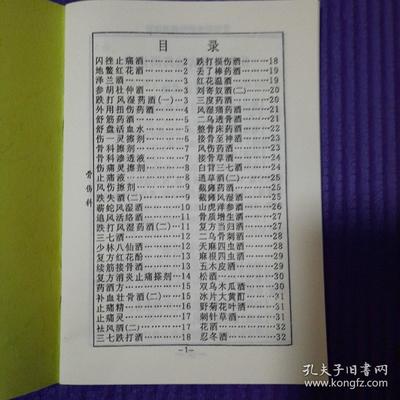 目 录
骨伤科
闪挫止痛酒…………2
地鳖红花酒…………2
泽兰酒…………3
参胡杜仲酒…………3
跌打风湿药酒(一)…3
外用扭伤药酒…………5
舒筋药酒…………5
舒盘活血水…………5
伤一灵擦剂…………6
骨科擦剂…………7
骨科渗透液…………7
伤痛灵擦剂…………8
止痛液…………8
风伤擦剂…………8
跌失酒(二)…………9
蕲蛇风湿酒…………9
追风活络酒…………10
跌打风湿药酒(二)…11
三七酒…………12
少林八仙酒…………12
复方红花酊…………13
续筋接骨酒…………13
复方消炎止痛搽剂…14
药酒方…………15
补血壮骨酒(二)…15
止痛精…………16
止痛灵…………17
祛风酒(二)…………17
三七跌打酒…………18
跌打损伤酒…………18
丢了棒药酒…………19
红花温酒…………19
刘寄奴酒(二)………20
三皮药酒…………20
风湿痛药酒…………20
二乌透骨酒…………21
整骨床药酒…………21
接骨至神酒…………22
风伤药酒…………23
接骨草酒…………23
白背三七酒…………24
透草酒(二)…………24
截瘫药酒…………25
截瘫风湿酒…………25
山虎洋参酒…………26
骨质增生酒…………26
复方当归酒…………27
二乌骨刺酒…………28
天麻四虫酒…………28
麻根四虫酒…………29
五木皮酒…………29
松酒…………30
双乌木瓜酒…………30
冰片大黄酊…………31
野菊花叶酒…………31
刺针草酒…………31
花酒…………32
忍冬酒…………32
-1-
孔夫子旧书网
www.kongfz.com